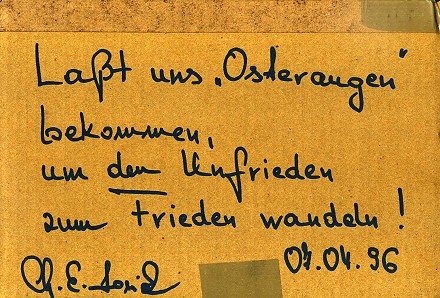 Laßt uns „Osteraugen“
bekommen,
um den Unfrieden
zum Frieden wandeln!
04.04.96
Ch. E.